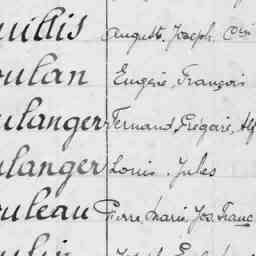 uillis August, Joseph
oulan Eugène, François
ulanger Fernand, Grégoire, Alf
ulanger Louis, Jules
ouleau Pierre, Marie, Jos, Franc